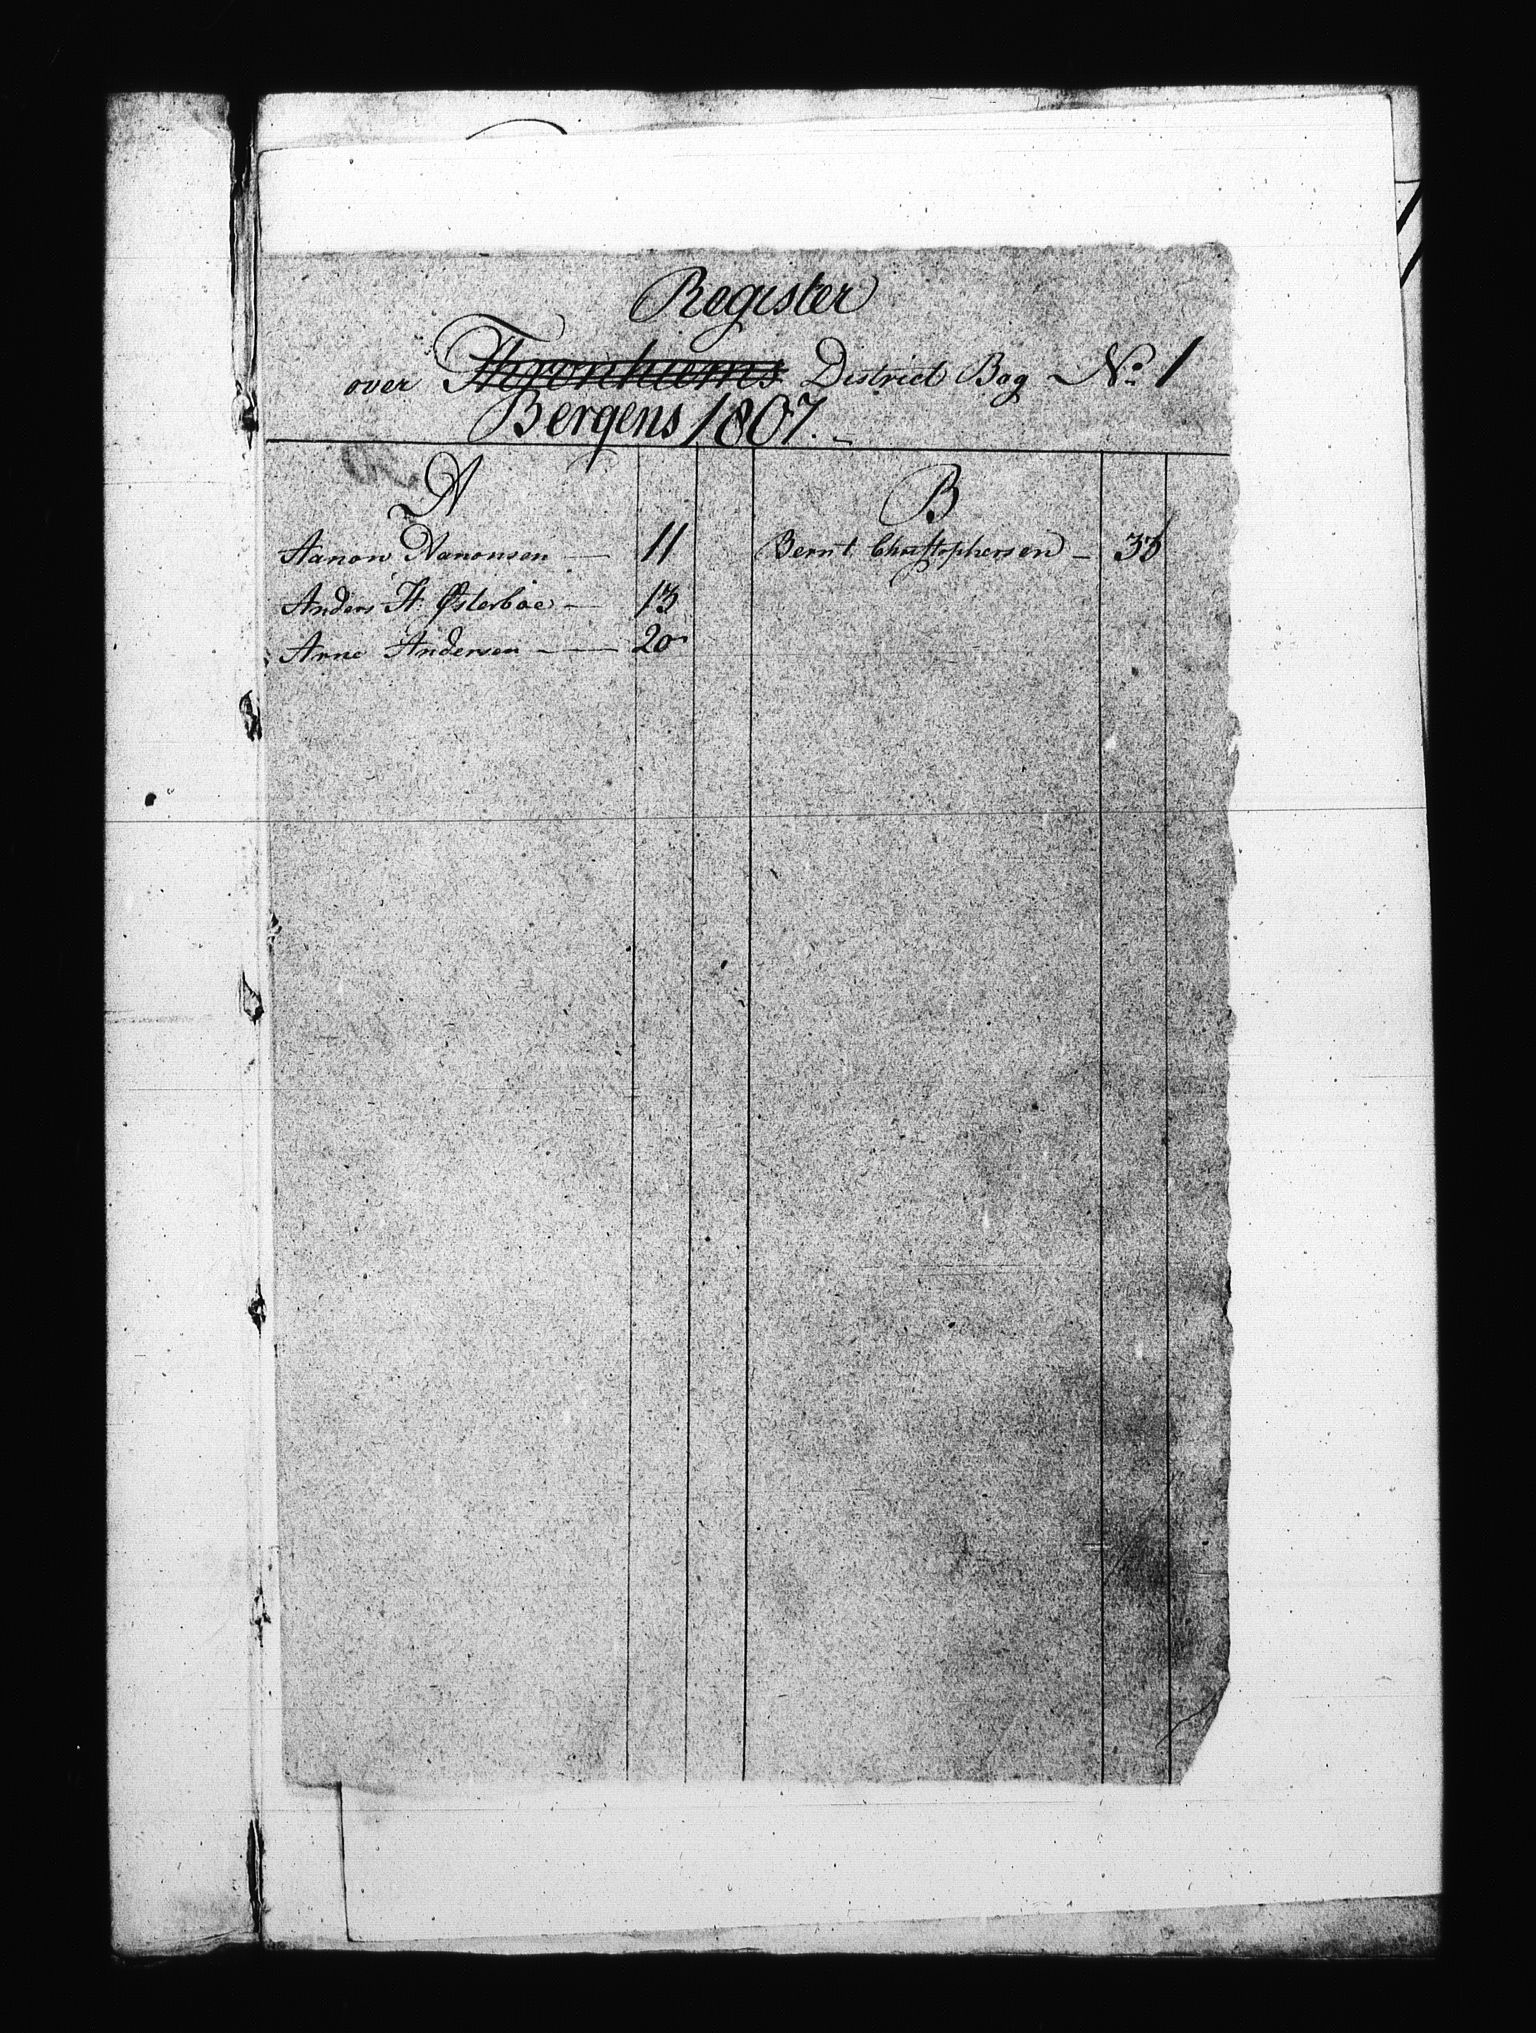 Register
over ~~Thronhiems~~ District Bog No. 1
Bergens 1807.
A
Aanon Aanonsen — 11
Anders H. Østerboe — 13
Arne Andersen — 20
B
Bernt Christophersen — 33